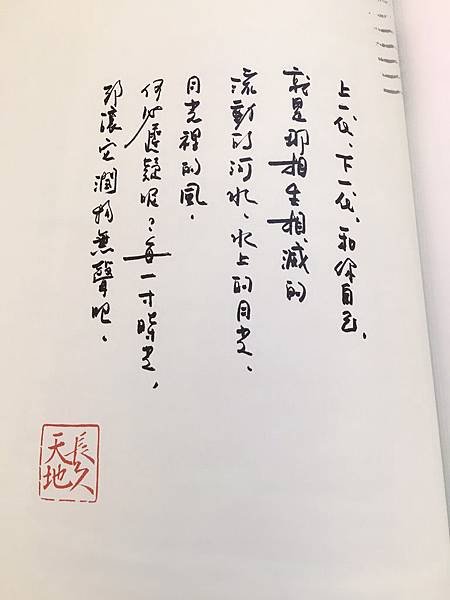 上一代、下一代、和你自己，
就是那相生相滅的
流動的河水、水上的月光、
月光裡的風。
何必遲疑呢？每一寸時光，
那讓它潤物無聲吧。
天長地久